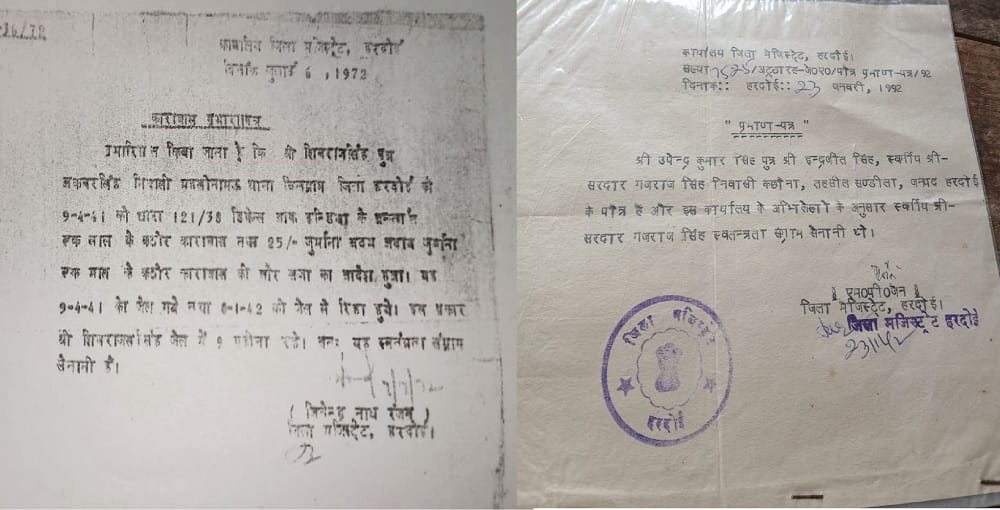 -26/72
कार्यालय जिला मजिस्ट्रेट, हरदोई
दिनांक जुलाई 6 ,1972
कारावास प्रमाणपत्र
प्रमाणित किया जाता है कि श्री शिवराजसिंह पुत्र
निवासी थाना जिला हरदोई को
9-4-41 को धारा 121/38 डिफेन्स आफ इन्डिया के अन्तर्गत
एक साल के कठोर कारावास तथा 25/- जुर्माना जुर्माना
एक माह के कठोर कारावास की और सजा का आदेश हुआ। यह
9-4-41 को जेल गये तथा 8-1-42 को जेल से रिहा हुये। इस प्रकार
श्री शिवराजसिंह जेल में 9 महीना रहे। अतः यह स्वतंत्रता संग्राम
सेनानी है।
( जितेन्द्र नाथ रंजन )
जिला मजिस्ट्रेट, हरदोई।
कार्यालय जिला मेजिस्ट्रेट, हरदोई।
संख्या /अट्ठारह-जे0ए0/पौत्र प्रमाण-पत्र/92
दिनांक:: हरदोई:: 23 जनवरी, 1992
" प्रमाण-पत्र "
श्री उपेन्द्र कुमार सिंह पुत्र श्री इन्द्रजीत सिंह, स्वर्गीय श्री-
सरदार गजराज सिंह निवासी कछौना, तहसील सण्डीला, जनपद हरदोई
के पौत्र हैं और इस कार्यालय के अभिलेखों के अनुसार स्वर्गीय श्री-
सरदार गजराज सिंह स्वतन्त्रता संग्राम सेनानी थे।
जिला मेजिस्ट्रेट, हरदोई।
जिला मजिस्ट्रेट हरदोई
जिला मजिस्ट्रेट
हरदोई